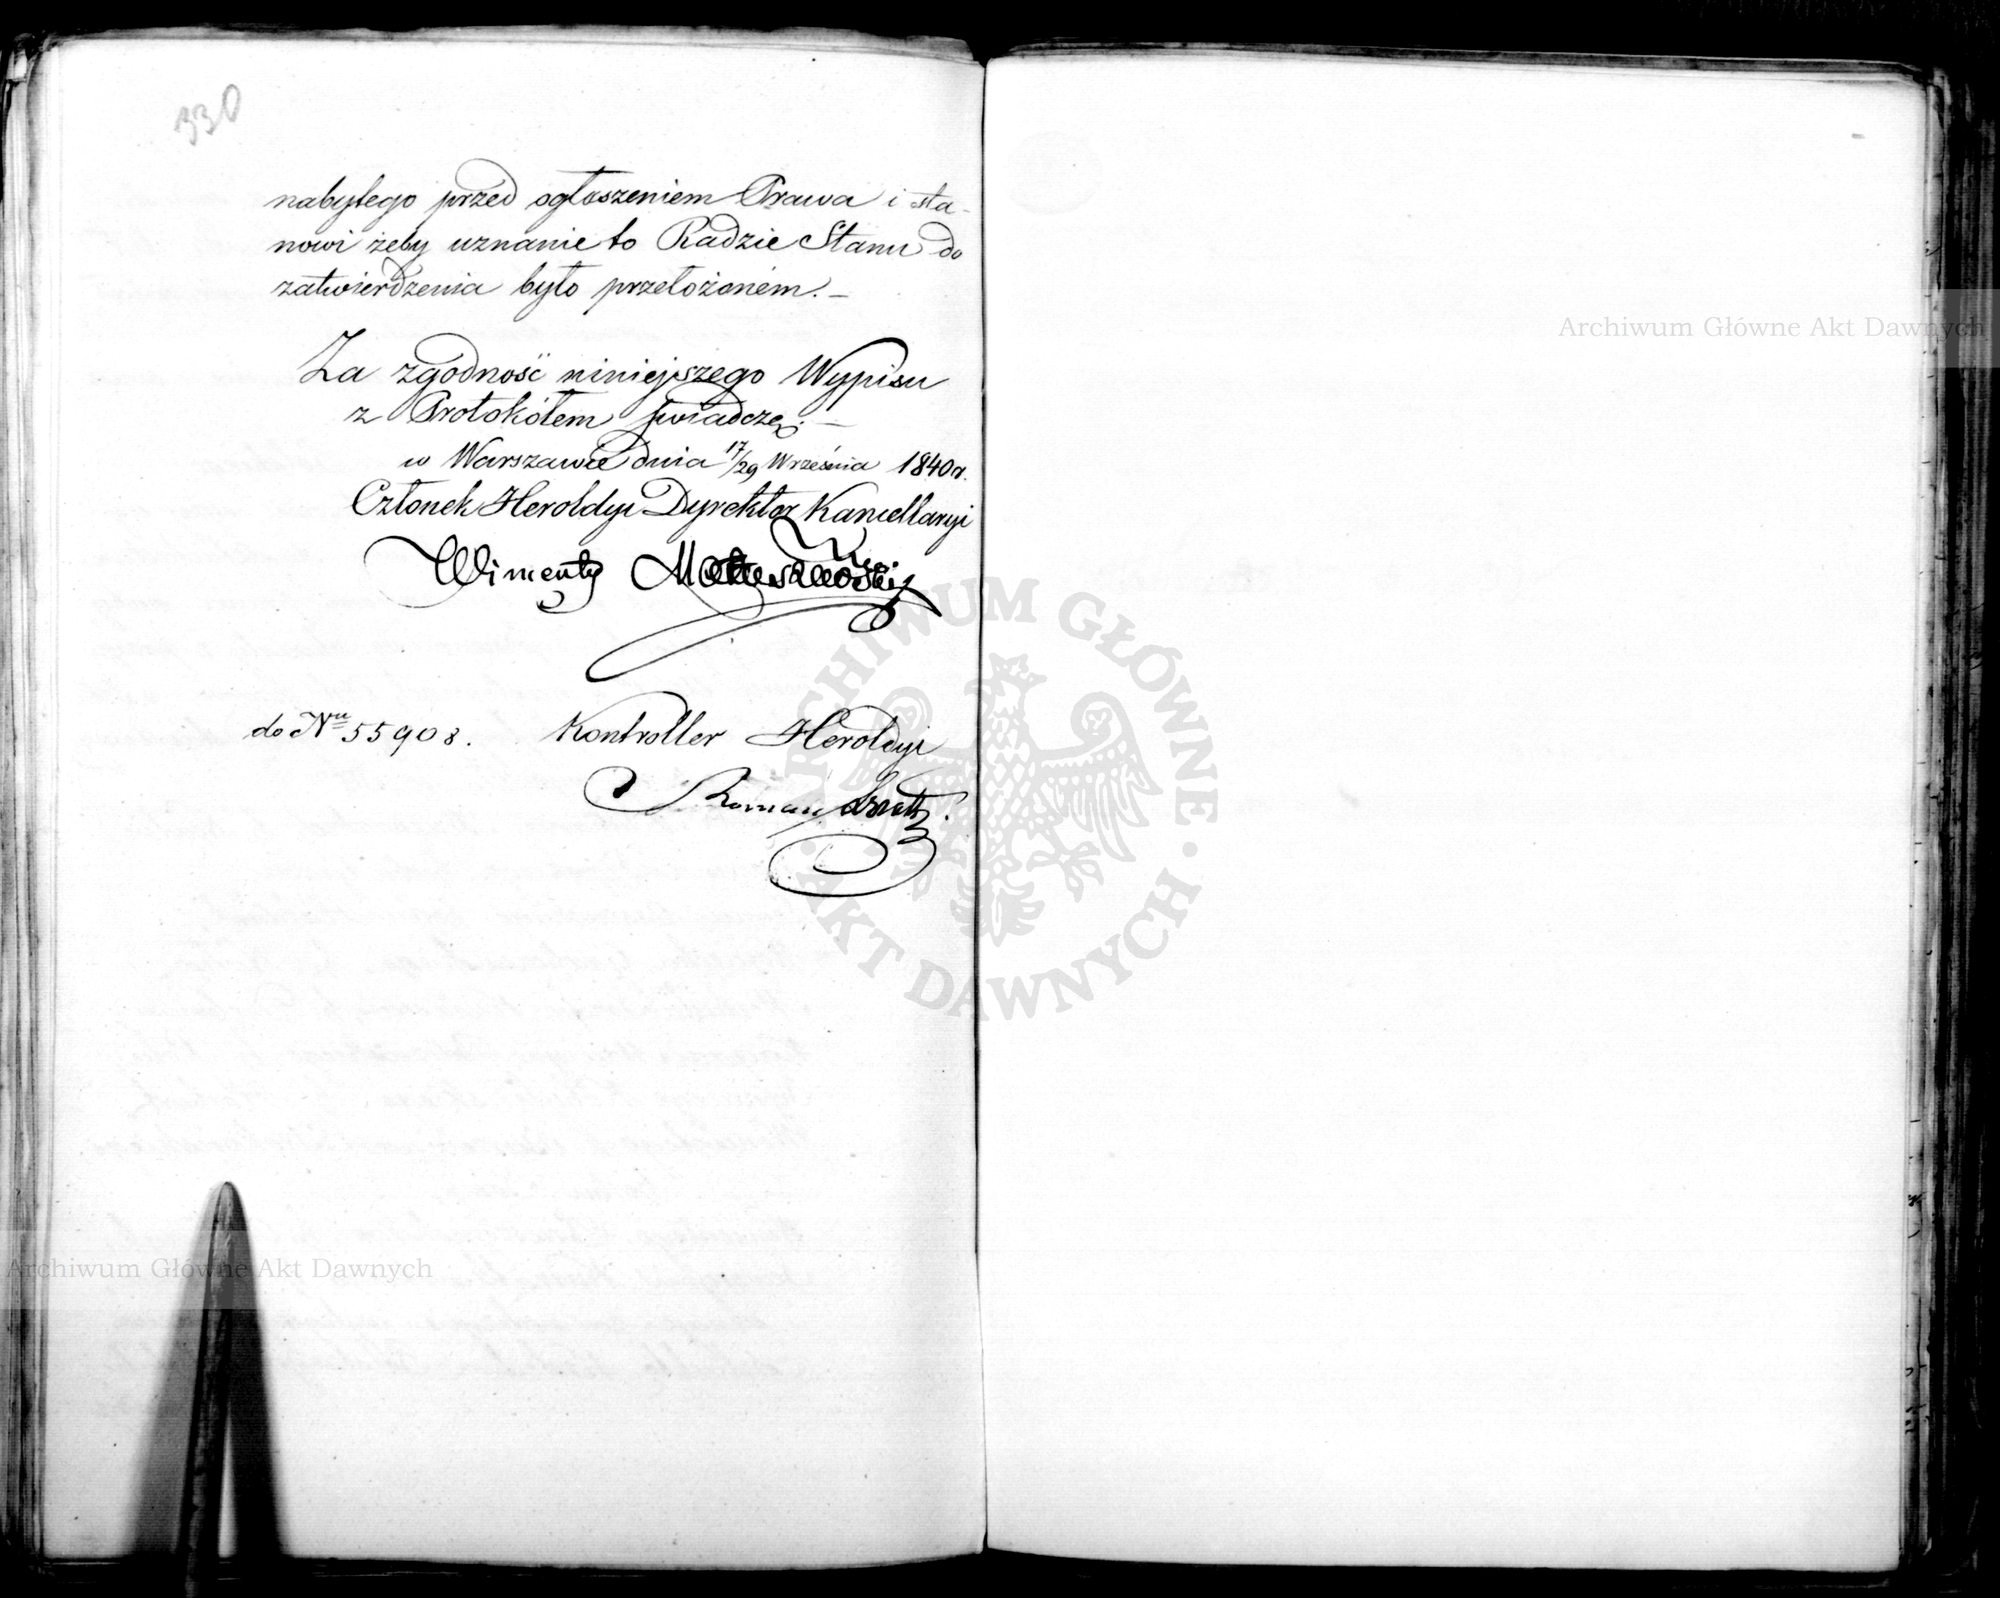 330
nabytego przed ogłoszeniem Prawa i sta-
nowi żeby uznanie to Radzie Stanu do
zatwierdzenia było przełożoném. –
Za zgodność niniejszego Wypisu
z Protokółem świadczę. –
w Warszawie dnia 17/29 Września 1840 r.
Członek Heroldyi Dyrektor Kancellaryi
Wincenty
do Nru 55908. Kontroller Heroldyi
Roman
Archiwum Główne Akt Dawnych
ARCHIWUM GŁÓWNE AKT DAWNYCH
Archiwum Główne Akt Dawnych